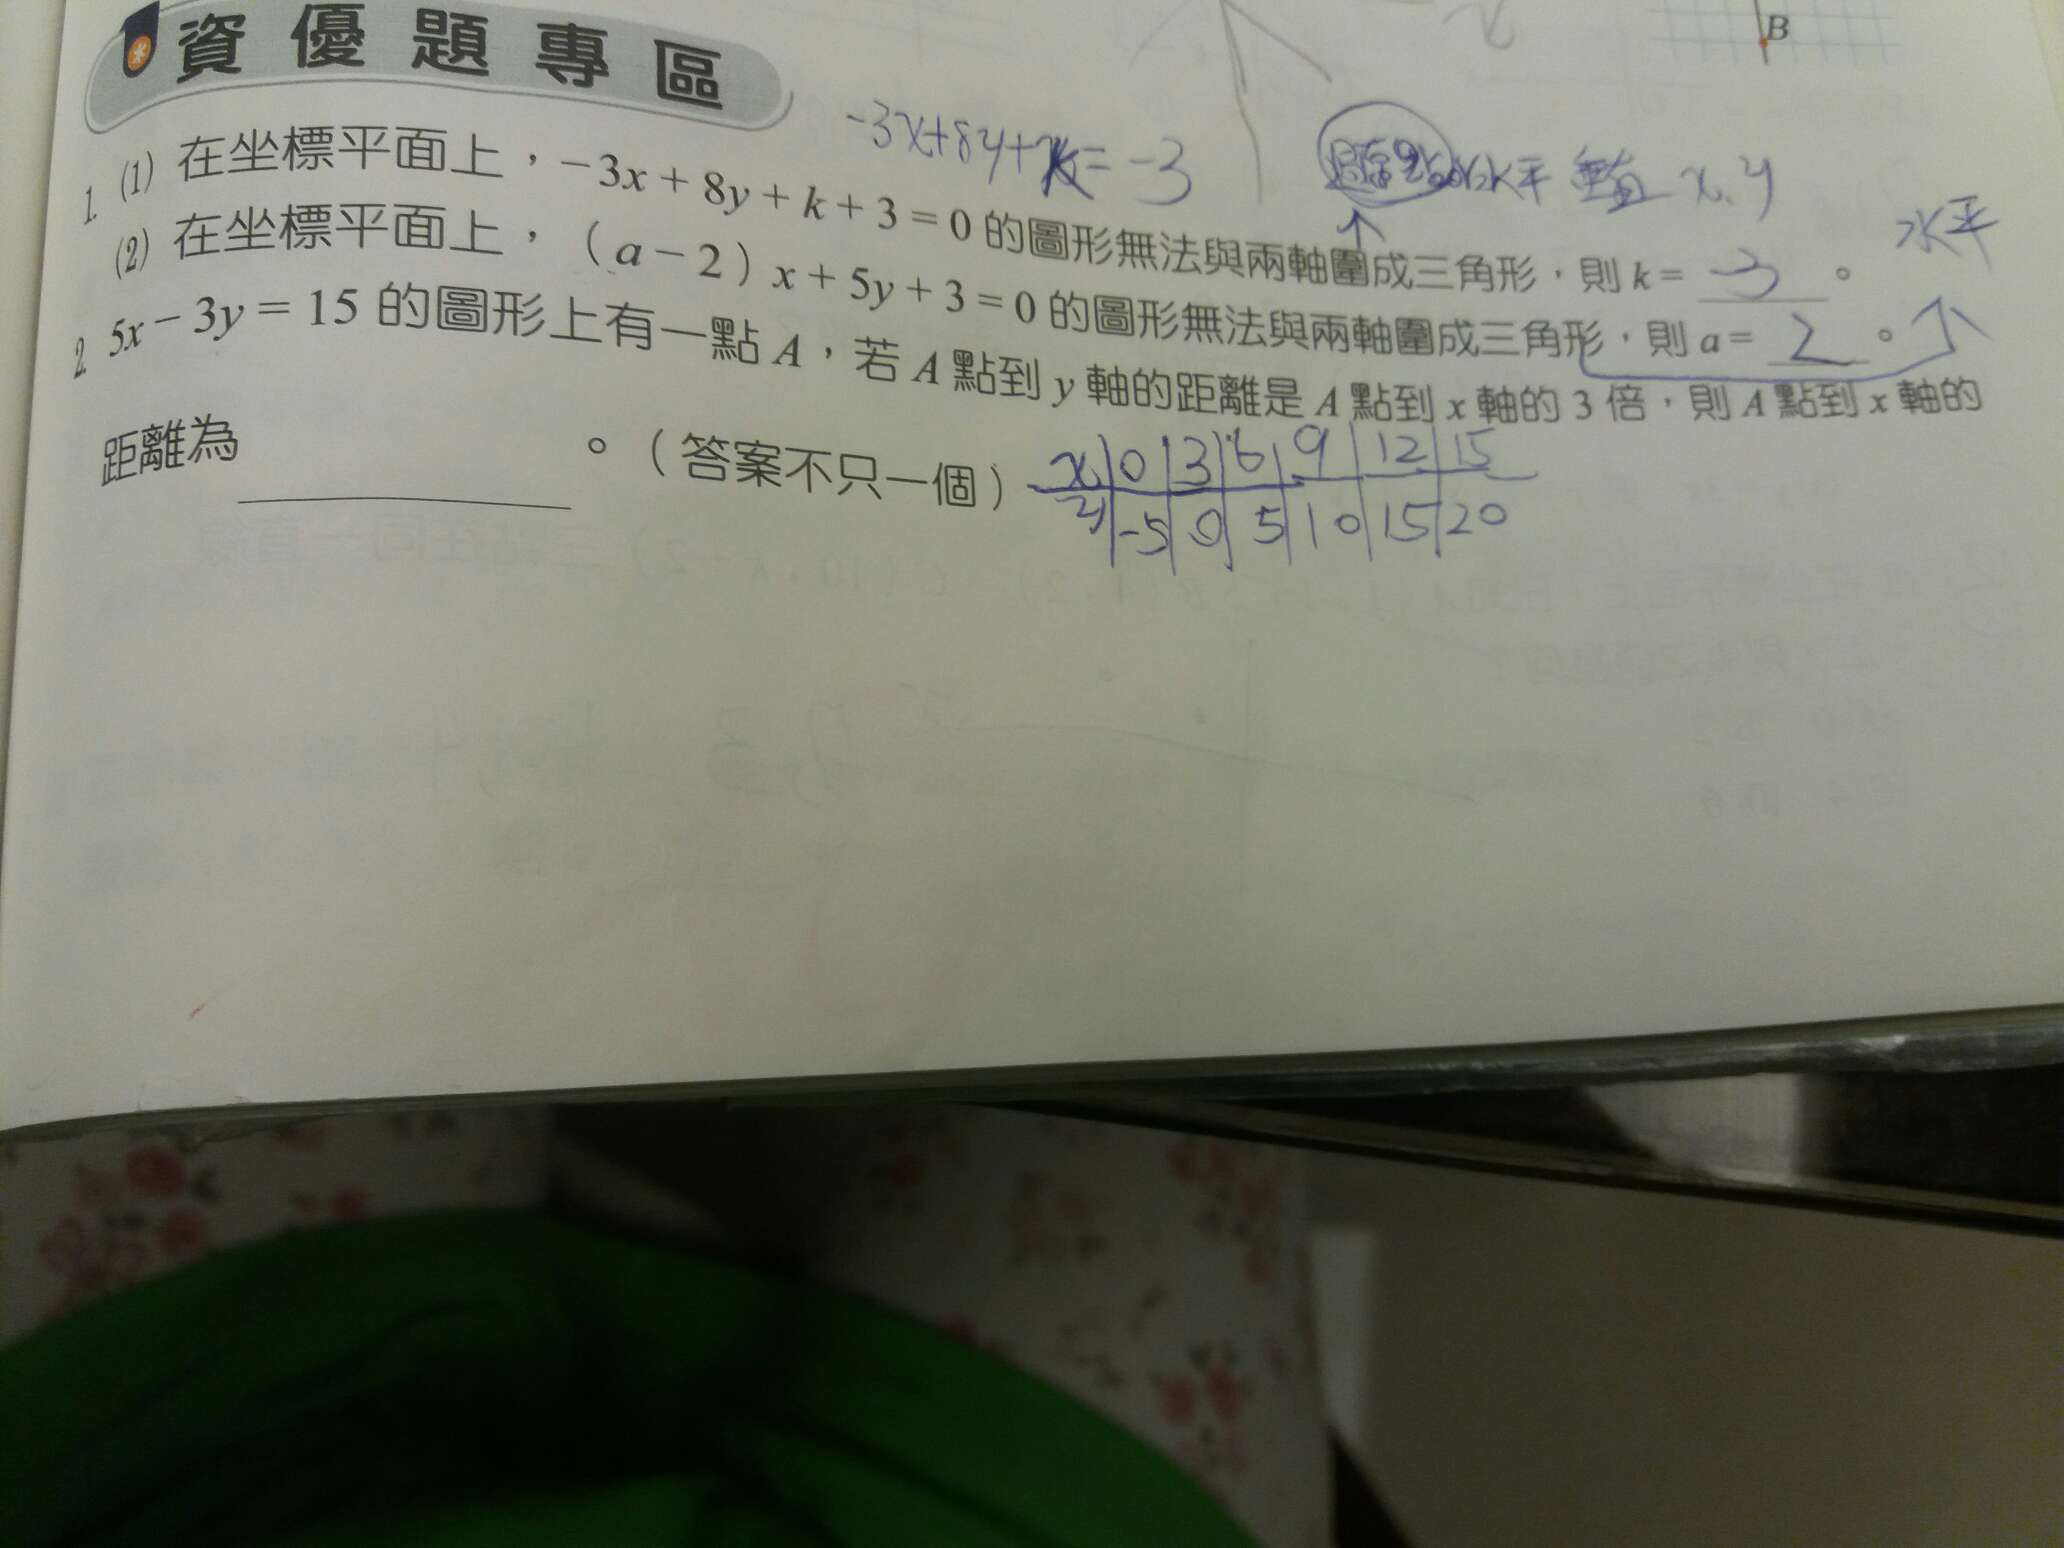 資優題專區
B
-3x+8y+k=-3
水平 x、y
1. (1) 在坐標平面上，-3x+8y+k+3=0 的圖形無法與兩軸圍成三角形，則 k= -3 。
水平
(2) 在坐標平面上，（a-2）x+5y+3=0 的圖形無法與兩軸圍成三角形，則 a= 2 。
2. 5x-3y=15 的圖形上有一點 A，若 A 點到 y 軸的距離是 A 點到 x 軸的 3 倍，則 A 點到 x 軸的
距離為 。（答案不只一個）
x 0 3 6 9 12 15
y -5 0 5 10 15 20